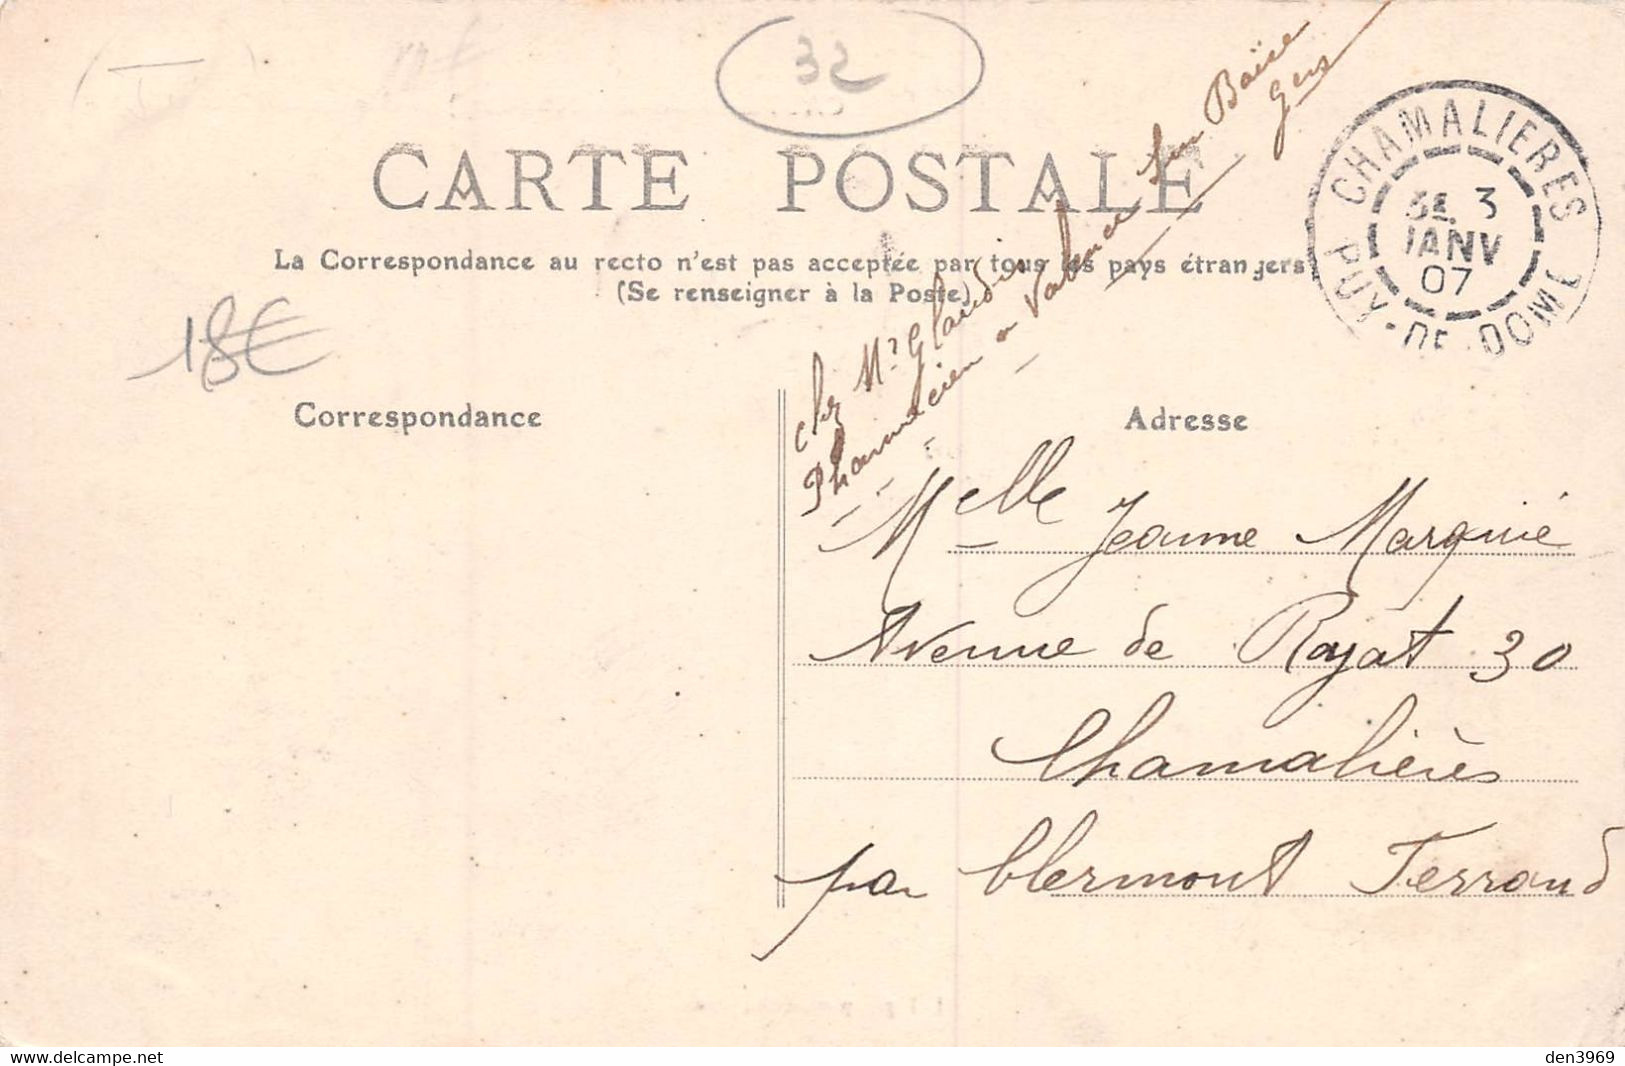 32
CARTE POSTALE
La Correspondance au recto n'est pas acceptée par tous les pays étrangers
(Se renseigner à la Poste)
CHAMALIERES
3E 3
JANV
07
PUY-DE-DOME
18€
Correspondance
Adresse
chez Mr
Pharmacien à Valence sur Baïse
Gers
Melle Jeanne Marquié
Avenue de Royat 30
Chamalières
par Clermont Ferrand
www.delcampe.net
den3969